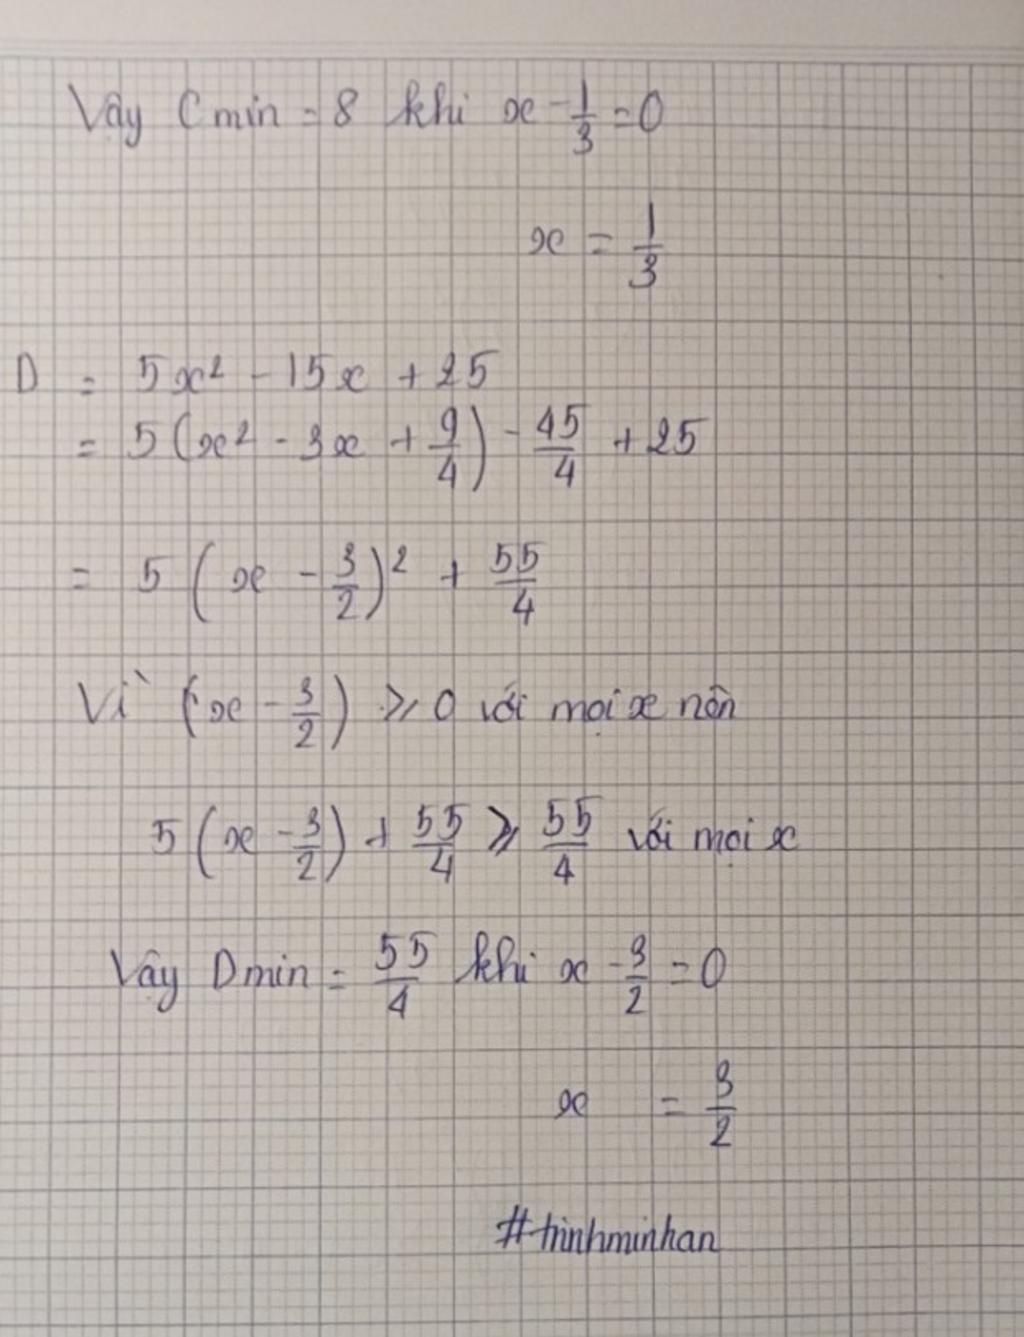 Vậy Cmin = 8 khi x - 1/3 = 0
x = 1/3
D = 5x² - 15x + 25
= 5(x² - 3x + 9/4) - 45/4 + 25
= 5(x - 3/2)² + 55/4
Vì (x - 3/2) ≥ 0 với mọi x nên
5(x - 3/2) + 55/4 ≥ 55/4 với mọi x
Vậy Dmin = 55/4 khi x - 3/2 = 0
x = 3/2
#trinhminhan